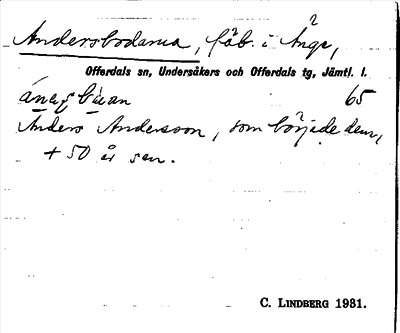 Andersbodarna, fäb. i Ånge,
Offerdals sn, Undersåkers och Offerdals tg, Jämtl. l.
65
Anders Andersson, som började dem,
+ 50 år sen.
C. LINDBERG 1931.